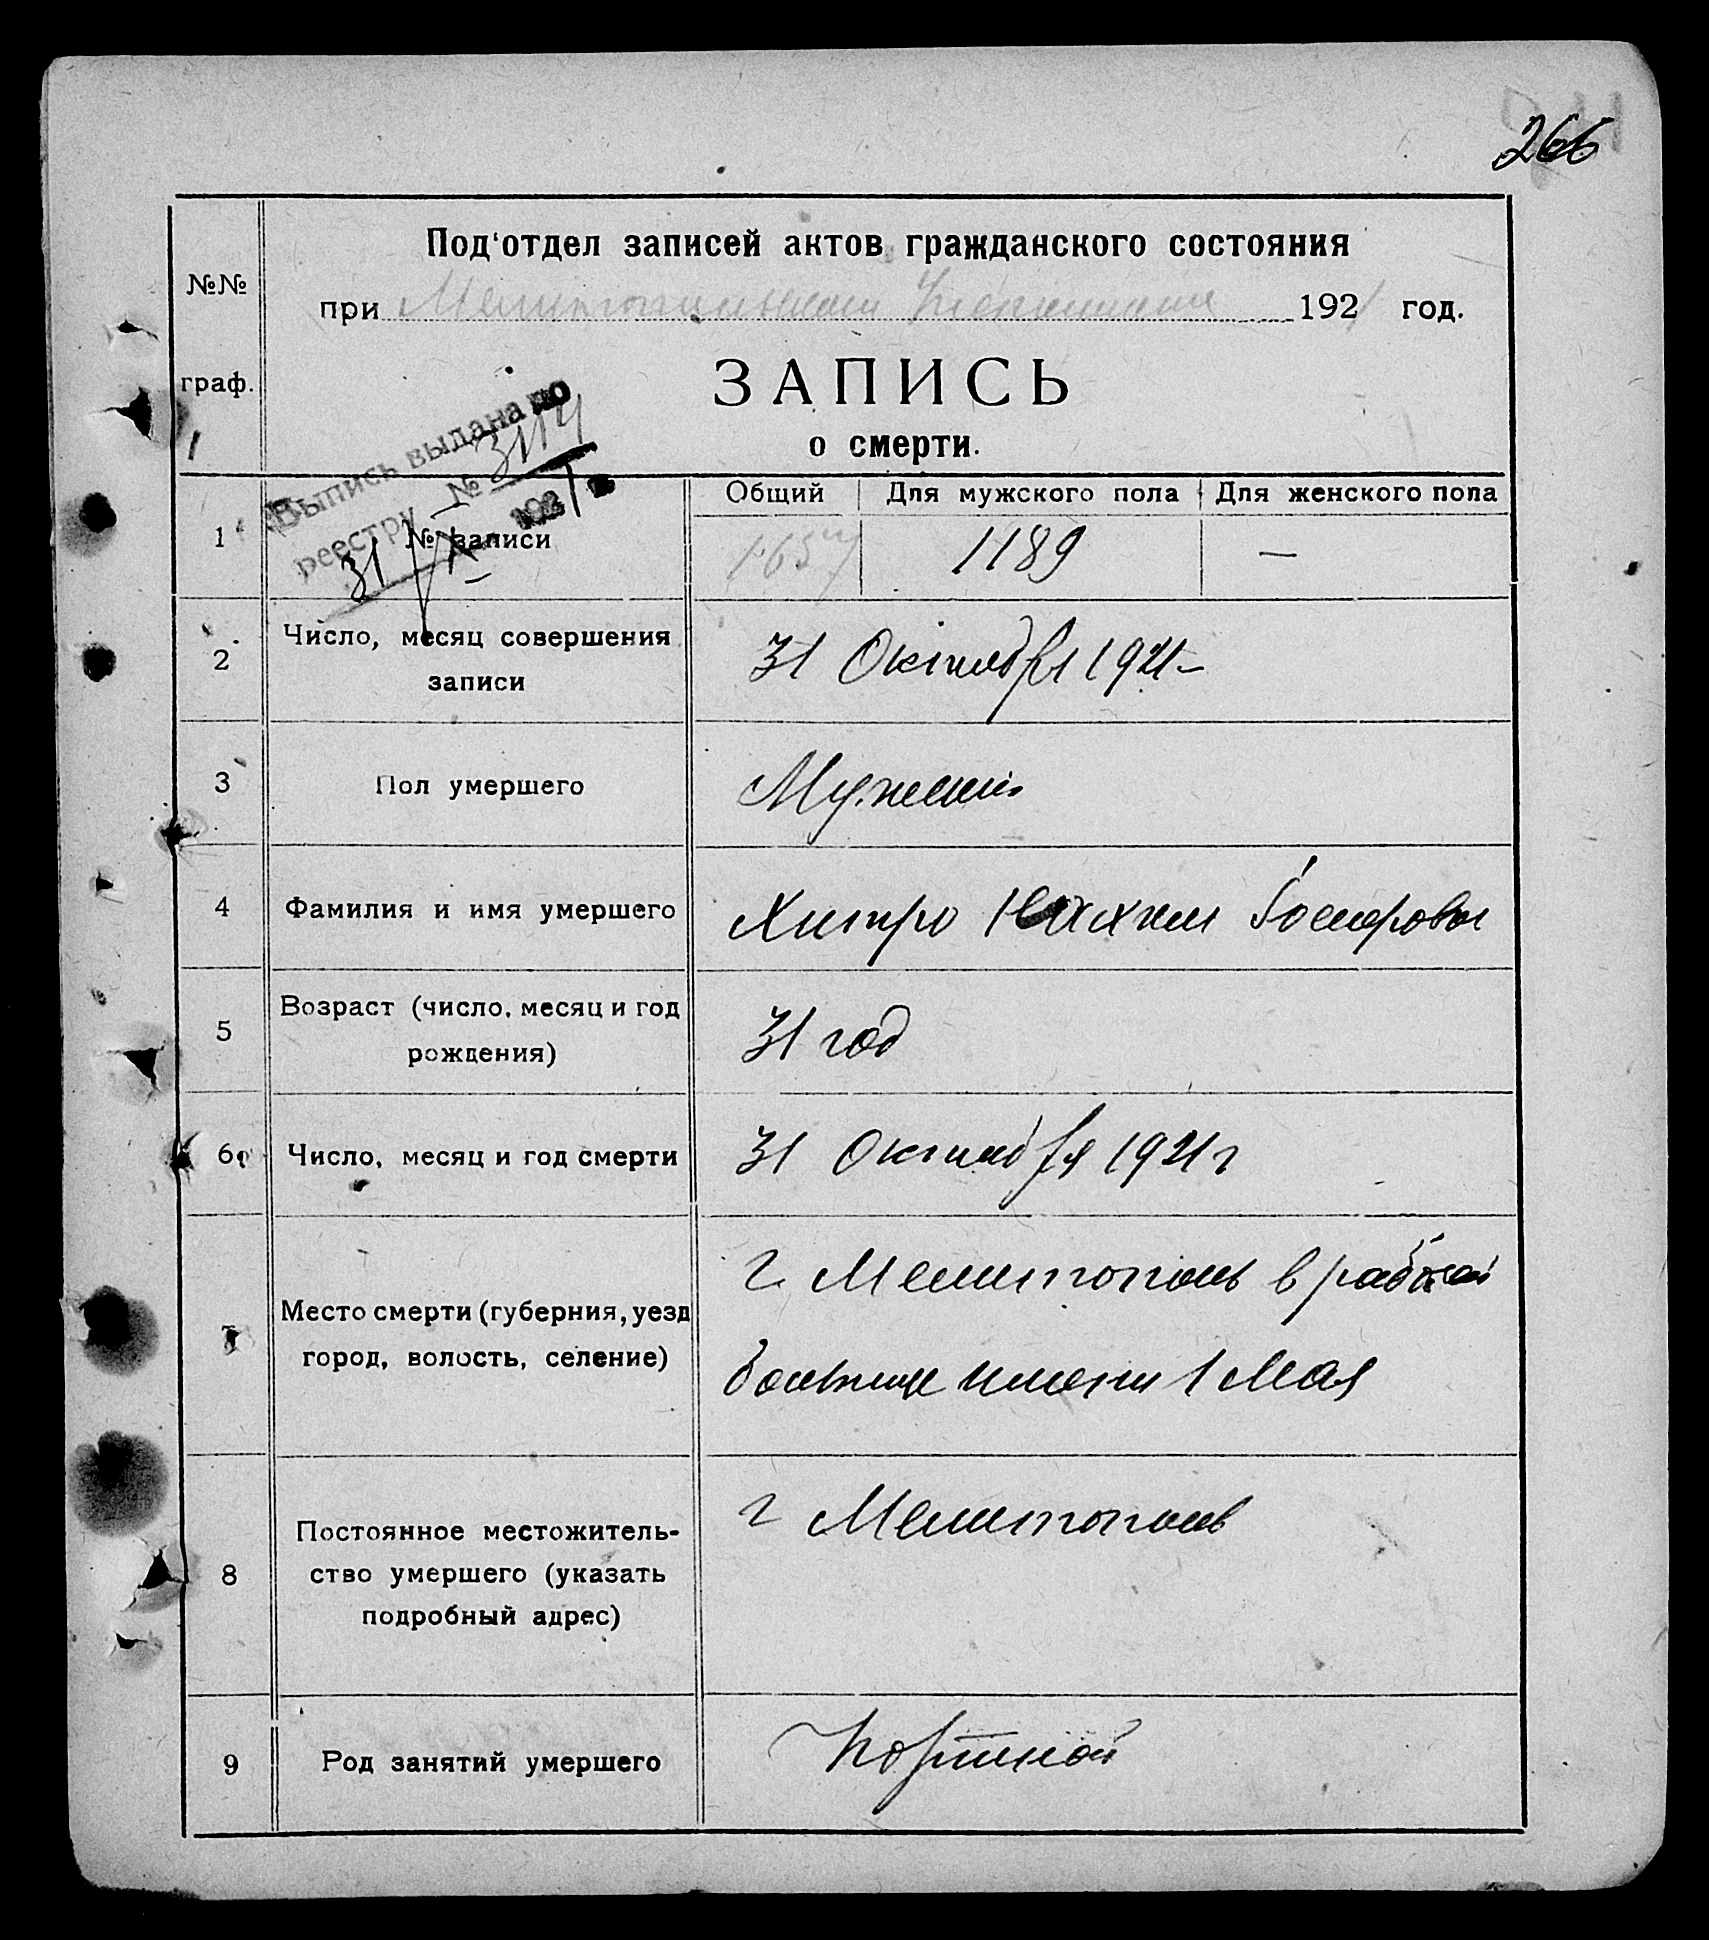 266
Под'отдел записей актов гражданского состояния
№№
при Мелитопольском 1921 год.
граф.
ЗАПИСЬ
о смерти.
1
Выпись выдана по
реестру № 3114
31/X 1921 г.
Общий Для мужского пола Для женского пола
1 № записи 1657 1189 —
2 Число, месяц совершения
записи
31 Октября 1921 –
3 Пол умершего Мужской
4 Фамилия и имя умершего Хитро
5 Возраст (число, месяц и год
рождения)
31 год
6 Число, месяц и год смерти 31 Октября 1921 г
7 Место смерти (губерния, уезд
город, волость, селение)
г. Мелитополь в рабочей
больнице имени 1 Мая
8 Постоянное местожитель-
ство умершего (указать
подробный адрес)
г Мелитополь
9 Род занятий умершего Портной